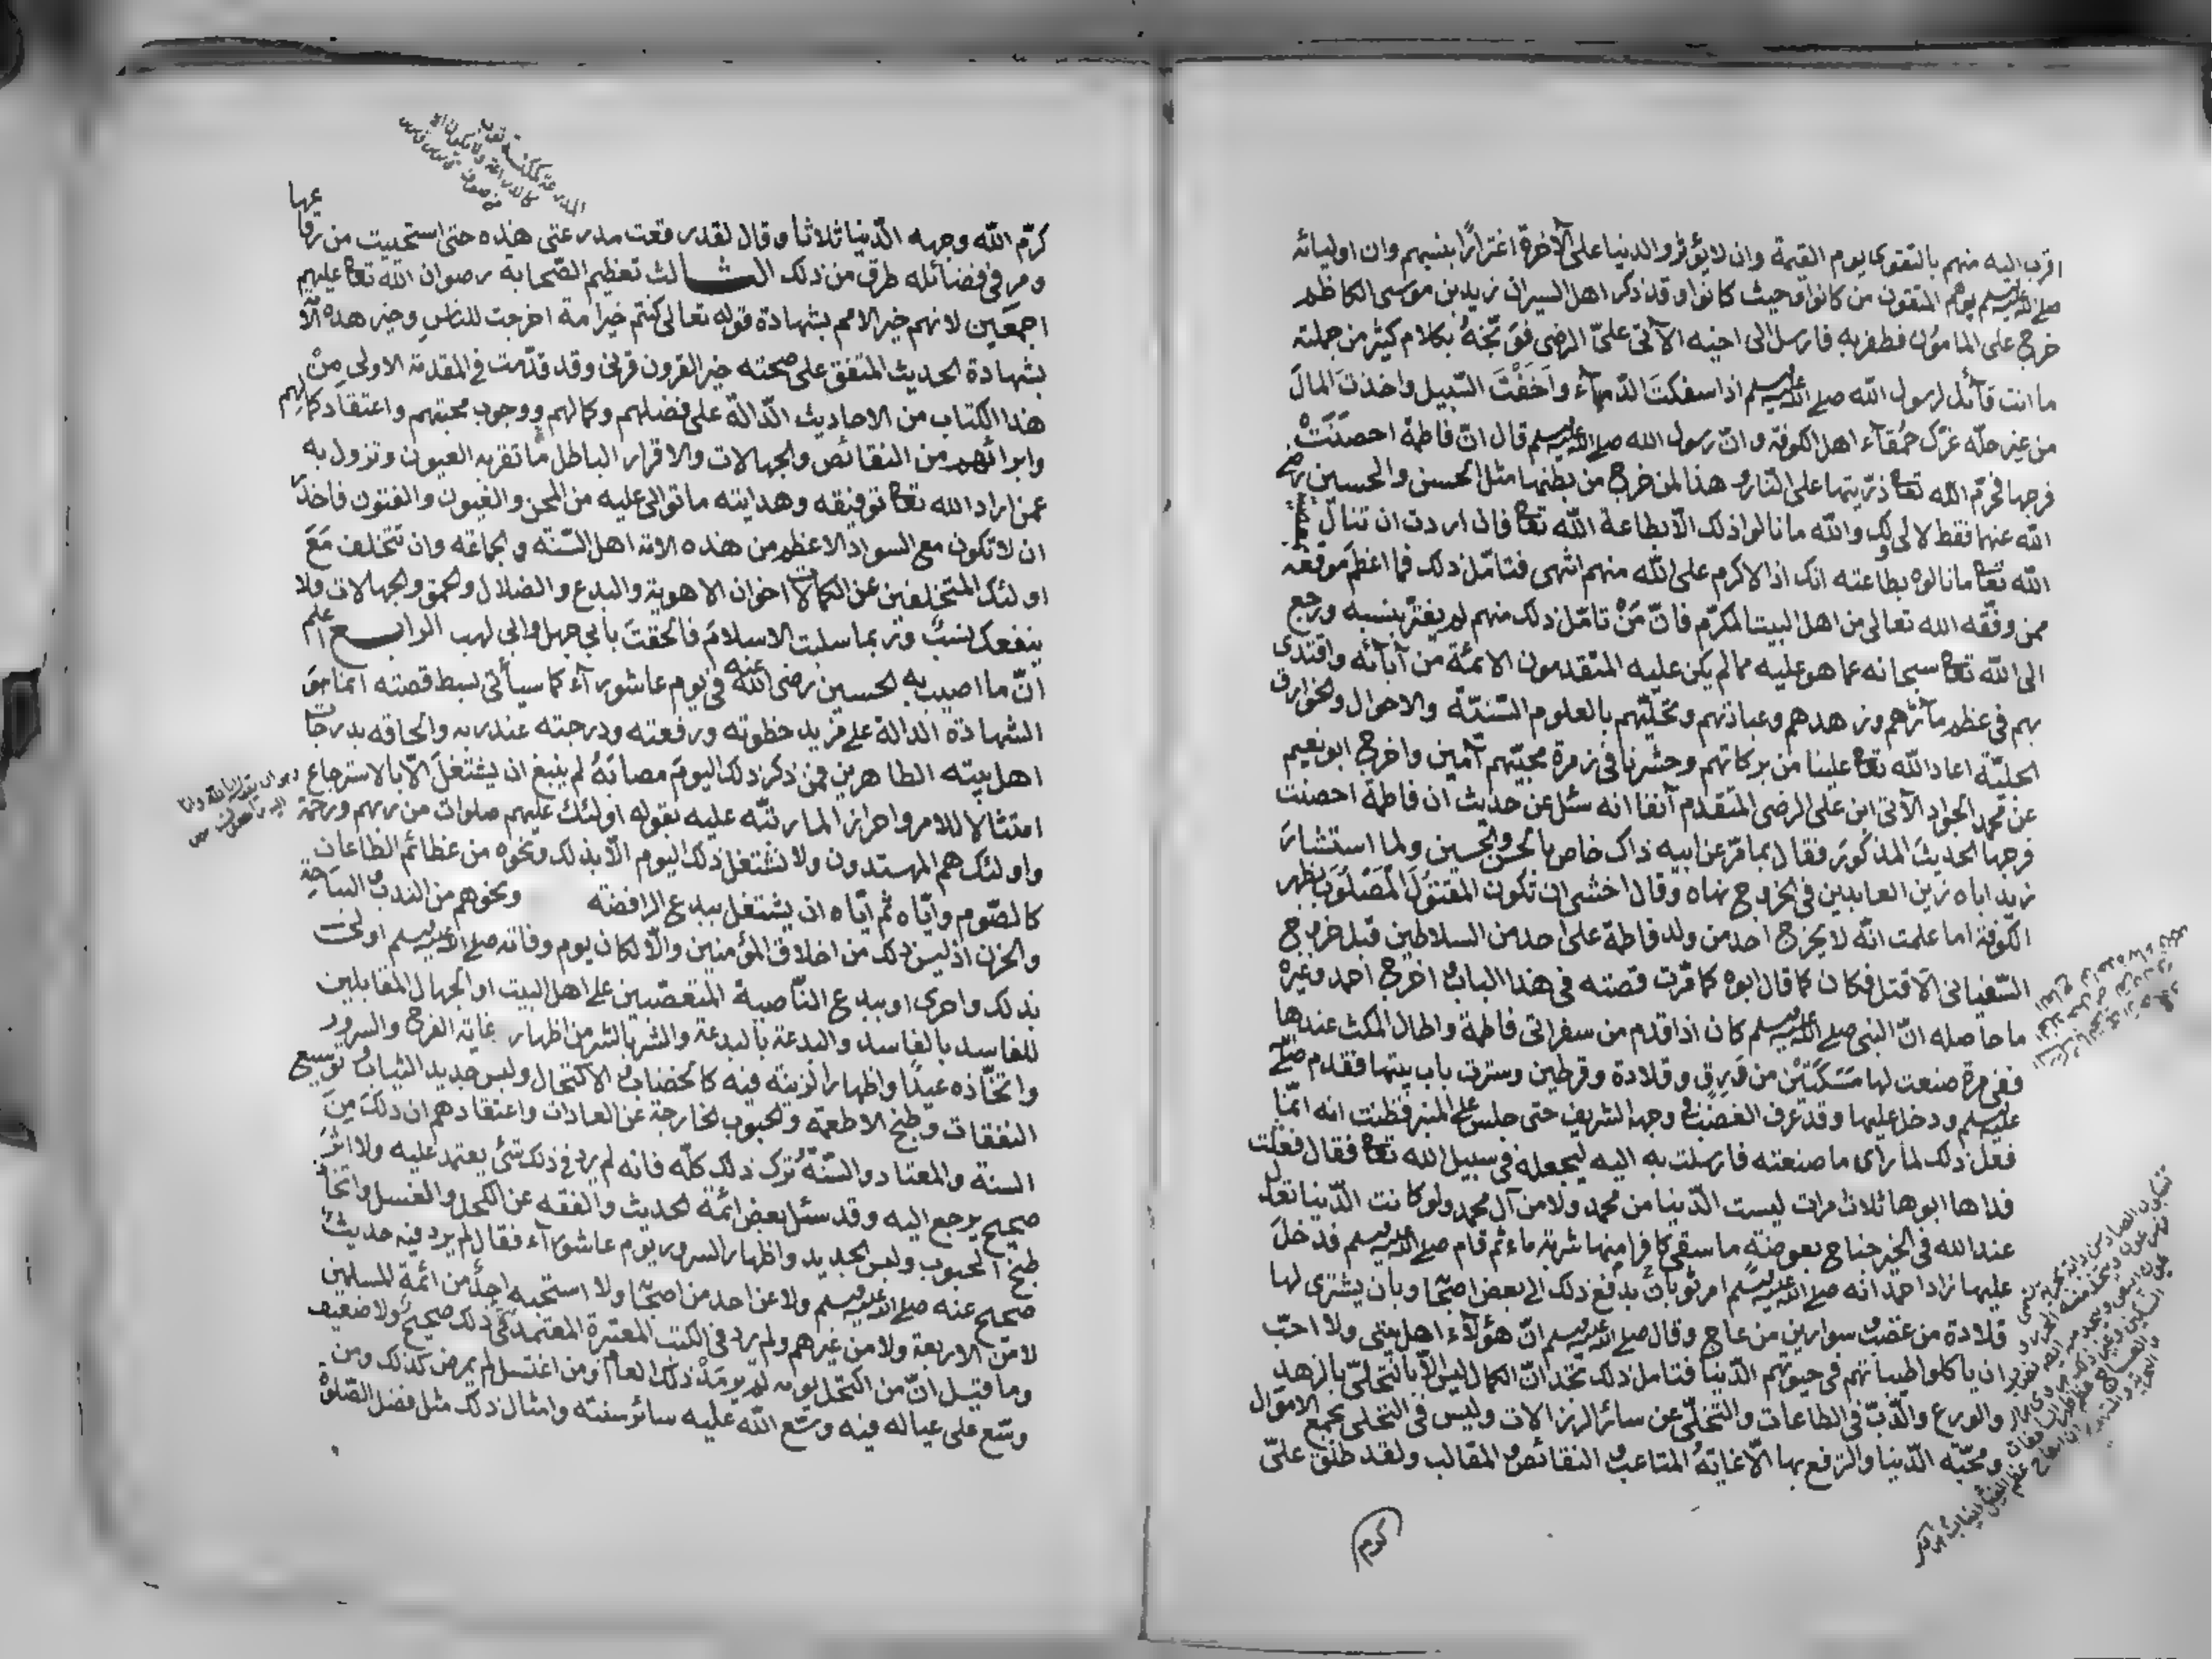 اقرب اليه منهم بالتقوى يوم القيمة وان لا يؤثروا الدنيا على الآخرة اغترارًا بنسبهم وان اوليائه
صلى الله عليه وسلم يوم المتقون من كانوا وحيث كانوا وقد ذكر اهل السير ان زيد بن موسى الكاظم
خرج على المامون فظفر به فارسل الى اخيه الآتى علىّ الرضى فوبّخهُ بكلام كثير من جملته
ما انت قآئل لرسول الله صلى الله عليه وسلم اذا سفكتَ الدّمآء واَخَفْتَ السّبيل واخذتَ المالَ
من غير حلّه غرّك حُمَقآء اهل الكوفة وانّ رسول الله صلى الله عليه وسلم قال انّ فاطمة احصَنَتْ
فرجها فحرّم الله تعا ذرّيتها على النّار هذا لمن خرج من بطنها مثل الحسن والحسين رضى
الله عنهما فقط لا لى ولك والله ما نالوا ذلك الّا بطاعة الله تعا فان اردت ان تنال بمعصية
الله تعا ما نالوه بطاعته انك اذا لاكرم على الله منهم انتهى فتامّل ذلك فما اعظم موقعه
ممن وفّقه الله تعالى من اهل البيت المكرّم فانّ مَنْ تامّل ذلك منهم لم يغترّ بنسبه ورجع
الى الله تعا سبحانه عما هو عليه مما لم يكن عليه المتقدمون الائمّة من آبآئه واقتدى
بهم فى عظيم مآثرهم وزهدهم وعبادتهم وتحلّيهم بالعلوم السّنيّة والاحوال والخوارق
الجليّة اعاد الله تعا علينا من بركاتهم وحشرنا فى زمرة محبّيهم آمين واخرج ابو نعيم
عن محمد الجواد الآتى ابن على الرضى المتقدم آنفا انه سئل عن حديث ان فاطمة احصنت
فرجها الحديثَ المذكورَ فقال بما مرّ عن ابيه ذاك خاص بالحسن والحسين ولما استشارَ
زيد اباه زين العابدين فى الخروج نهاه وقال اخشى ان تكون المقتولَ المَصْلُوبَ بظهر
الكوفة اما علمت انّه لا يخرج احد من ولد فاطمة على احد من السلاطين قبل خروج
السّفيانى الّا قتل فكان كما قال ابوه كما مرّت قصته فى هذا الباب واخرج احمد وغيره
ما حاصله انّ النبى صلى الله عليه وسلم كان اذا قدم من سفر اتى فاطمة واطال المكث عندها
ففى مرة صنعت لها مَسَكَتَيْن من وَرِقٍ وقلادة وقرطين وسترت باب بيتها فقدم صلى الله
عليه وسلم ودخل عليها وقد عرف الغضب فى وجهه الشريف حتى جلس على المنبر فظنت انه انّما
فعل ذلك لما رأى ما صنعته فارسلت به اليه ليجعله فى سبيل الله تعا فقال فعلت
فداها ابوها ثلاث مرات ليست الدّنيا من محمد ولا من آل محمد ولو كانت الدّنيا تعدل
عند الله فى الخير جناح بعوضة ما سقى كافرا منها شربة ماء ثم قام صلى الله عليه وسلم فدخلَ
عليها زاد احمد انه صلى الله عليه وسلم امر ثوبانُ بدفع ذلك الى بعض اصحابه وبأن يشترى لها
قلادة من عَصَب وسوارين من عاج وقال صلى الله عليه وسلم انّ هؤلآء اهل بيتى ولا احبّ
ان ياكلوا طيباتهم فى حيوتهم الدّنيا فتامل ذلك تجد انّ الكمال ليس الّا بالتحلّى بالزهد
والورع والدّأب فى الطاعات والتخلّى عن سائر الرزالات وليس فى التحلى بجمع الاموال
ومحبّة الدّنيا والترفع بها الّا غاية المتاعب والنقائص والمثالب ولقد طلّق علىّ
كرم
كرّم الله وجهه الدّنيا ثلاثا وقال لقد رقعت مدرعتى هذه حتى استحييت من راقعها
ومر فى فضآئله طرق من ذلك الثالث تعظيم الصّحابة رضوان الله تعا عليهم
اجمعين لانهم خير الامم بشهادة قوله تعالى كنتم خير امة اخرجت للناس وخير هذه الامّة
بشهادة الحديث المتفق على صحته خير القرون قرنى وقد قدّمت فى المقدمة الاولى مِنْ
هذا الكتاب من الاحاديث الدّالة على فضلهم وكمالهم ووجوب محبتهم واعتقاد كمالهم
وابرائهم من النقائص والجهالات والاقرار الباطل ما تقر به العيون وتزول به
عمن اراد الله تعا توفيقه وهدايته ما توالى عليه من المحن والغيون والفتون فاحذر
ان لا تكون مع السواد الاعظم من هذه الامة اهل السّنة والجماعة وان تتخلف مَعَ
اولئك المتخلفين عن الكمالات اخوان الاهوية والبدع والضلال والحمق والجهالات فلا
ينفعك نسبٌ وربما سلبت الاسلامَ فالحقتَ بابى جهل وابى لهب الرابع اعلم
انّ ما اصيب به الحسين رضى الله عنه فى يوم عاشورآء كما سيأتى بسط قصته انما هو
الشهادة الدالة على مزيد حظوته ورفعته ودرجته عند ربه والحاقه بدرجات
اهل بيته الطاهرين فمن ذكر ذلك اليومَ مصابَهُ لم ينبغ ان يشتغلَ الّا بالاسترجاع
امتثالا للامر واحرازا لما رتّبه عليه بقوله اولئك عليهم صلوات من ربهم ورحمة
واولئك هم المهتدون ولا نشتغل ذلك اليوم الّا بذلك ونحوه من عظائم الطاعات
كالصّوم وايّاه ثم ايّاه ان يشتغل ببدع الرافضة ونحوهم من الندب والنياحة
والحزن اذ ليس ذلك من اخلاق المؤمنين والّا لكان يوم وفاته صلى الله عليه وسلم اولى
بذلك واحرى او ببدع النّاصبة المتعصّبين على اهل البيت او الجهال المقابلين
للفاسد بالفاسد والبدعة بالبدعة والشر بالشر من اظهار غاية الفرح والسرور
واتخّاذه عيدًا واظهار الزينة فيه كالخضاب والاكتحال ولبس جديد الثياب وتوسيع
النفقات وطبخ الاطعمة والحبوب الخارجة عن العادات واعتقادهم ان ذلك مِنَ
السنة والمعتاد والسّنّةُ تُرك ذلك كلّه فانه لم يرد فى ذلك شئ يعتمد عليه ولا اثرٌ
صحيح يرجع اليه وقد سئل بعض ائمة الحديث والفقه عن الكحل والغسل والحنّا
طبخ الحبوب ولبس الجديد واظهار السرور يوم عاشورآء فقال لم يرد فيه حديث
صحيح عنه صلى الله عليه وسلم ولا عن احد من اصحابه ولا استحبه احدٌ من ائمة المسلمين
لا من الاربعة ولا من غيرهم ولم يرد فى الكتب المعتبرة المعتمدة فى ذلك صحيح ولا ضعيف
وما قيل انّ من اكتحل يومه لم يرمَدْ ذلك العام ومن اغتسل لم يمرض كذلك ومن
وسّع على عياله فيه وسّع الله عليه سائر سنته وامثال ذلك مثل فضل الصّلوة